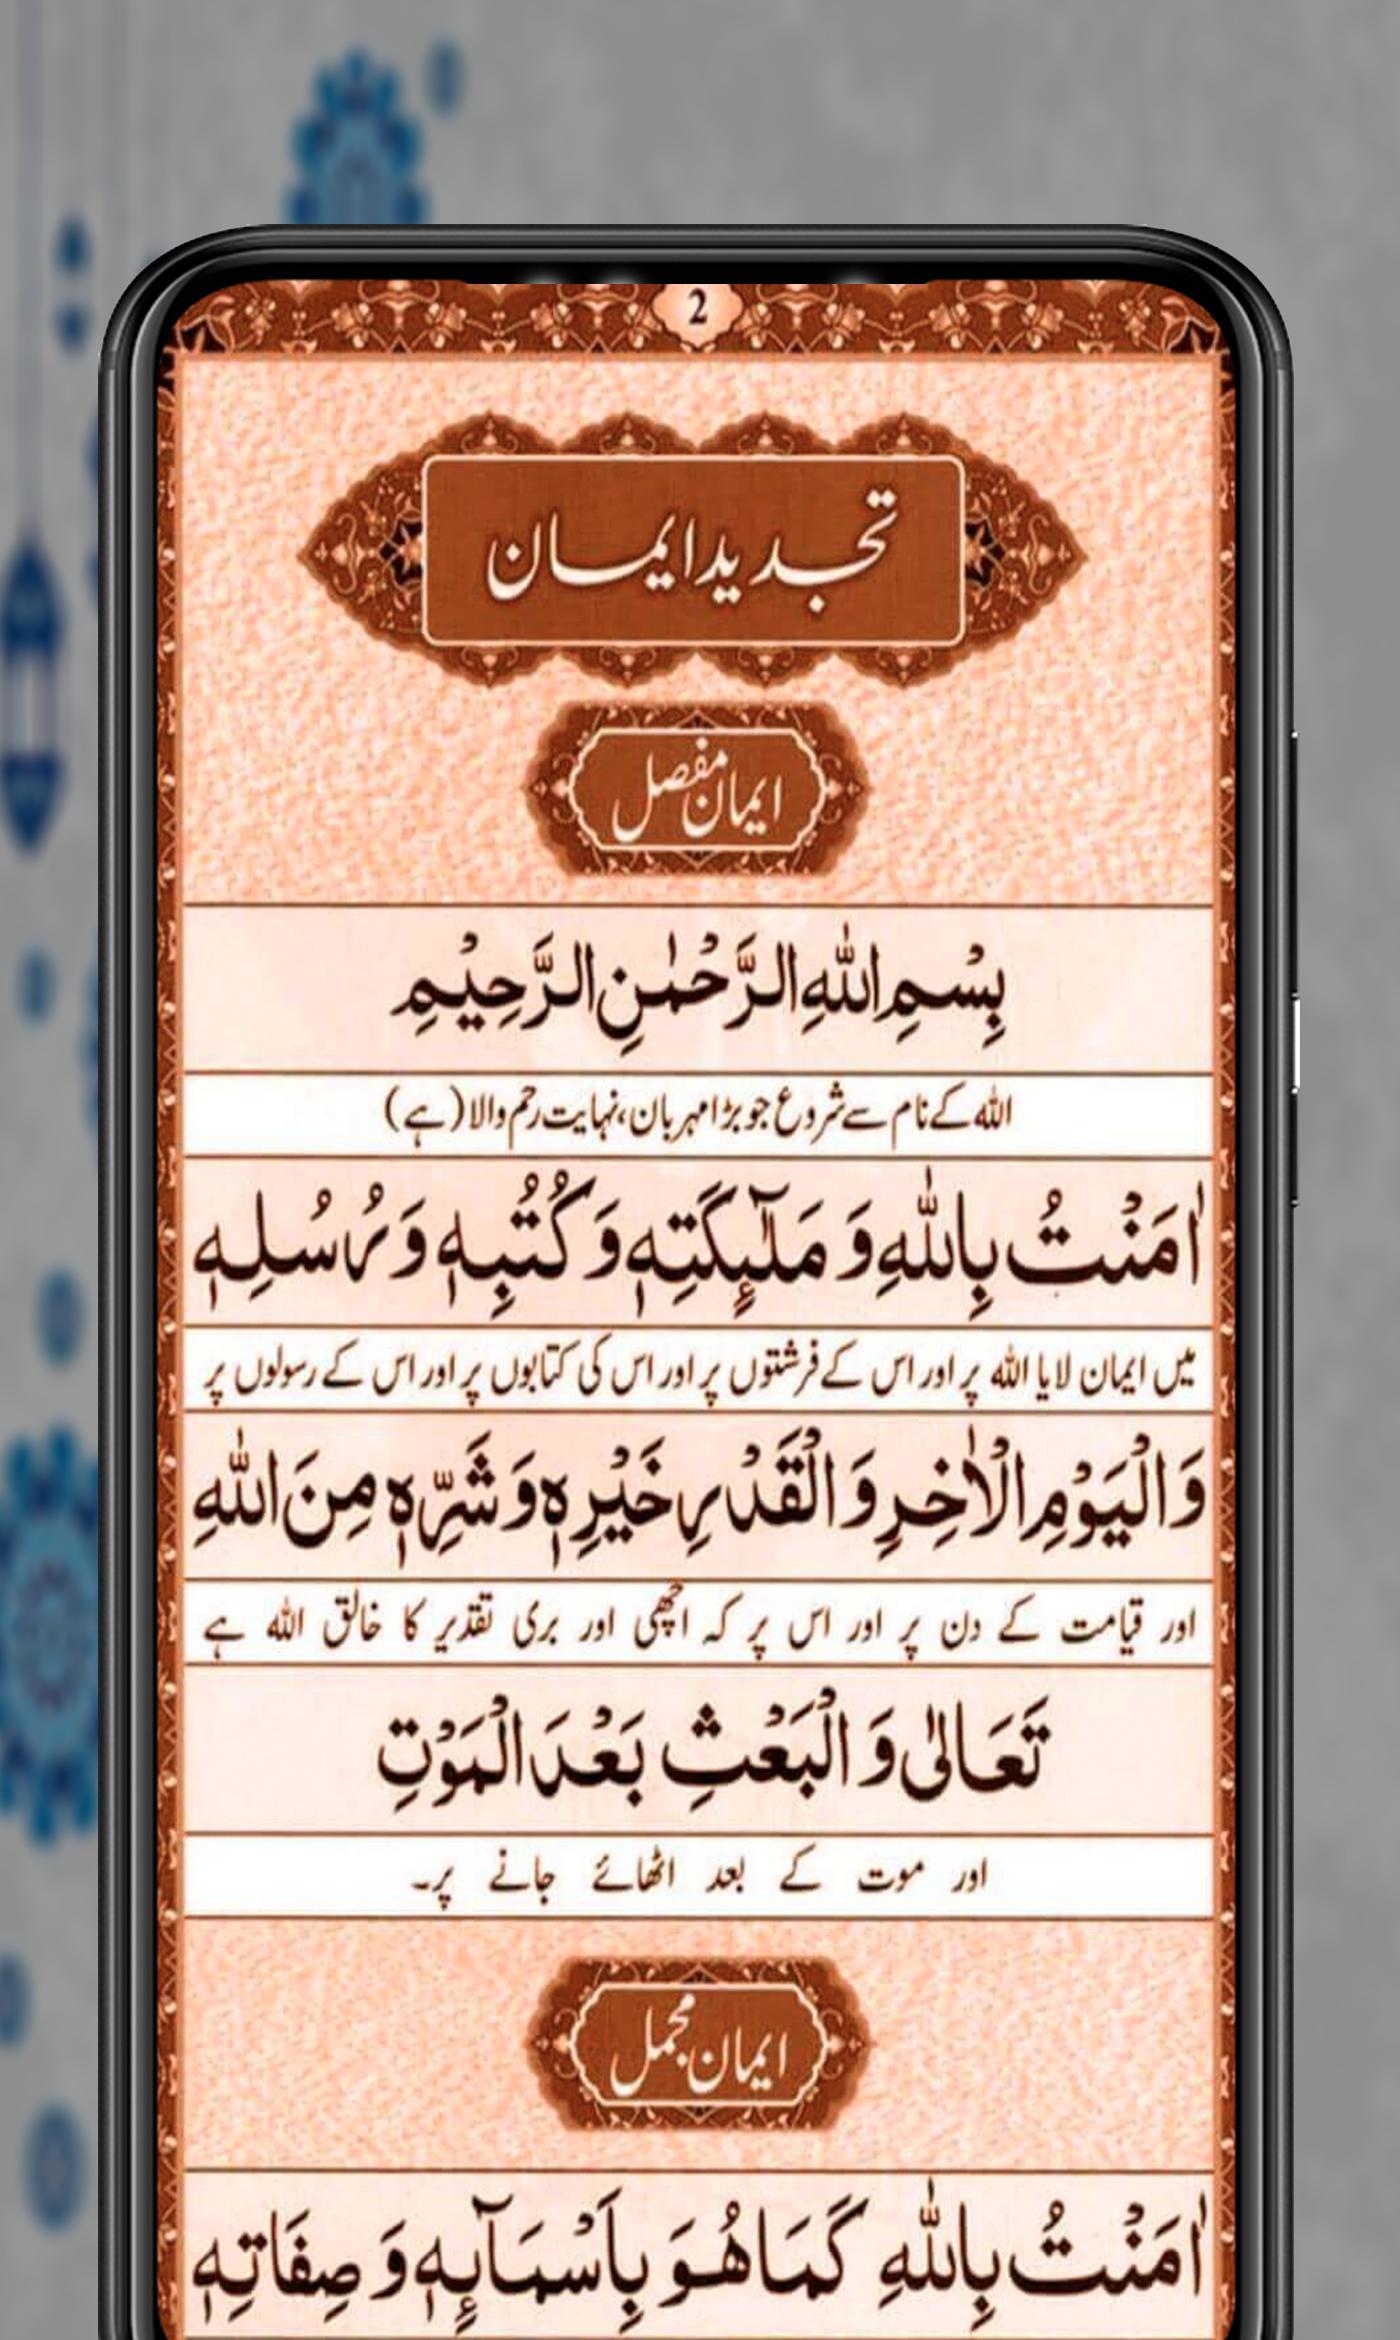 2
تجدید ایمان
ایمان مفصل
بِسْمِ اللّٰهِ الرَّحْمٰنِ الرَّحِیْمِ
اللہ کے نام سے شروع جو بڑا مہربان، نہایت رحم والا (ہے)
اٰمَنْتُ بِاللّٰهِ وَ مَلٰٓئِكَتِهٖ وَ كُتُبِهٖ وَ رُسُلِهٖ
میں ایمان لایا اللہ پر اور اس کے فرشتوں پر اور اس کی کتابوں پر اور اس کے رسولوں پر
وَ الْیَوْمِ الْاٰخِرِ وَ الْقَدْرِ خَیْرِهٖ وَ شَرِّهٖ مِنَ اللّٰهِ
اور قیامت کے دن پر اور اس پر کہ اچھی اور بری تقدیر کا خالق اللہ ہے
تَعَالٰی وَ الْبَعْثِ بَعْدَ الْمَوْتِ
اور موت کے بعد اٹھائے جانے پر۔
ایمان مجمل
اٰمَنْتُ بِاللّٰهِ كَمَا هُوَ بِاَسْمَآئِهٖ وَ صِفَاتِهٖ